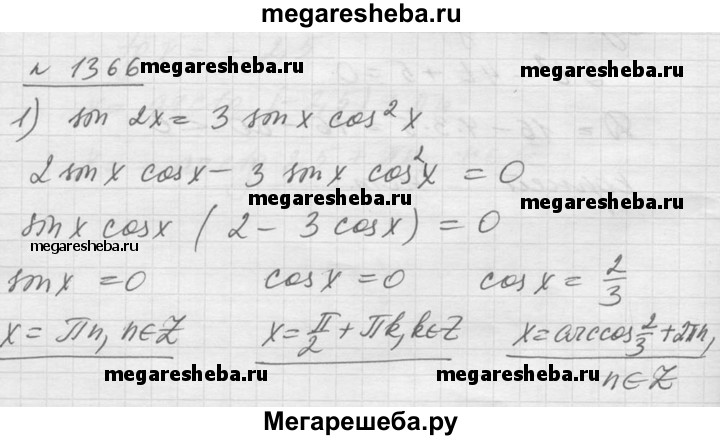 megaresheba.ru
№ 1366
megaresheba.ru megaresheba.ru
1) sin 2x = 3 sin x cos²x
2 sin x cos x - 3 sin x cos²x = 0
megaresheba.ru megaresheba.ru
sin x cos x (2 - 3 cos x) = 0
megaresheba.ru
sin x = 0 cos x = 0 cos x = 2/3
x = πn, n∈Z x = π/2 + πk, k∈Z x = arccos 2/3 + 2πn,
n∈Z
megaresheba.ru megaresheba.ru
Мегарешеба.ру